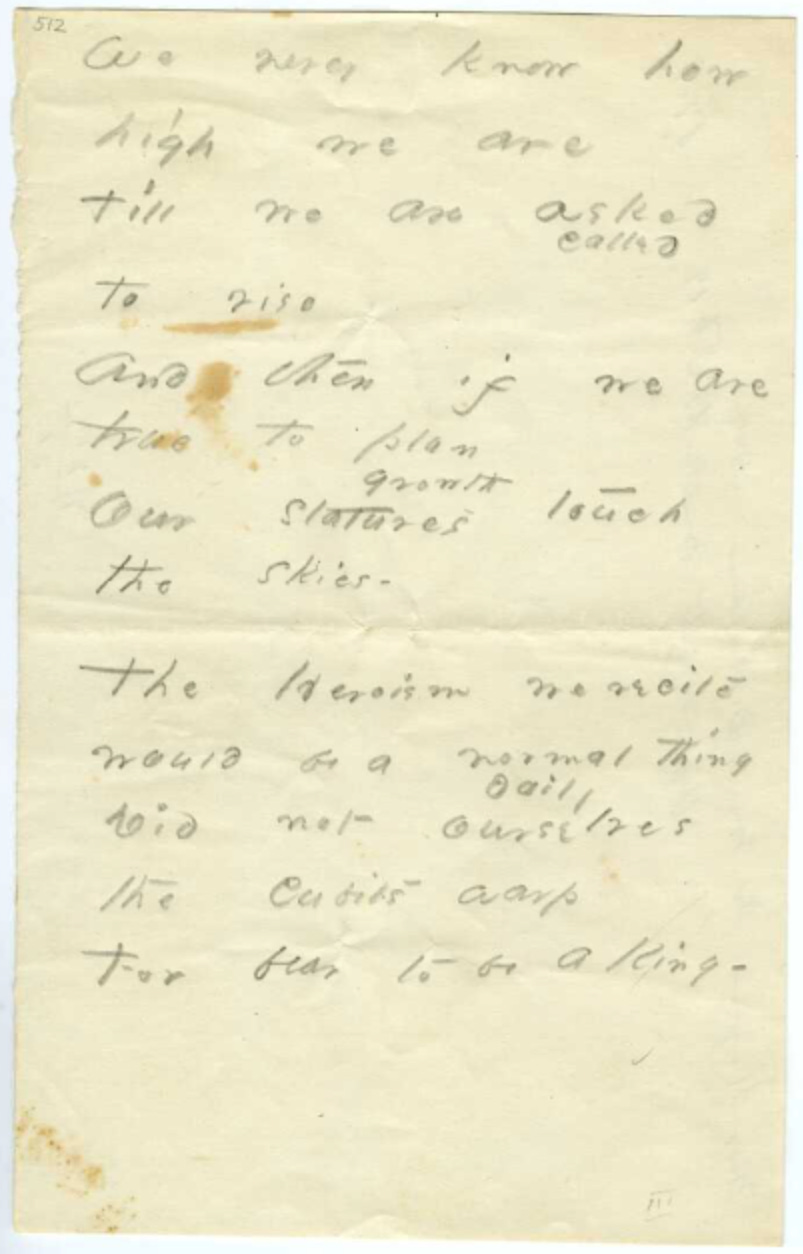 512
We never know how
high we are
Till we are asked
called
to rise
And then if we are
true to plan
growth
Our statures touch
the skies -
The Heroism we recite
would be a normal thing
daily
Did not ourselves
the Cubits warp
For fear to be a King -
III